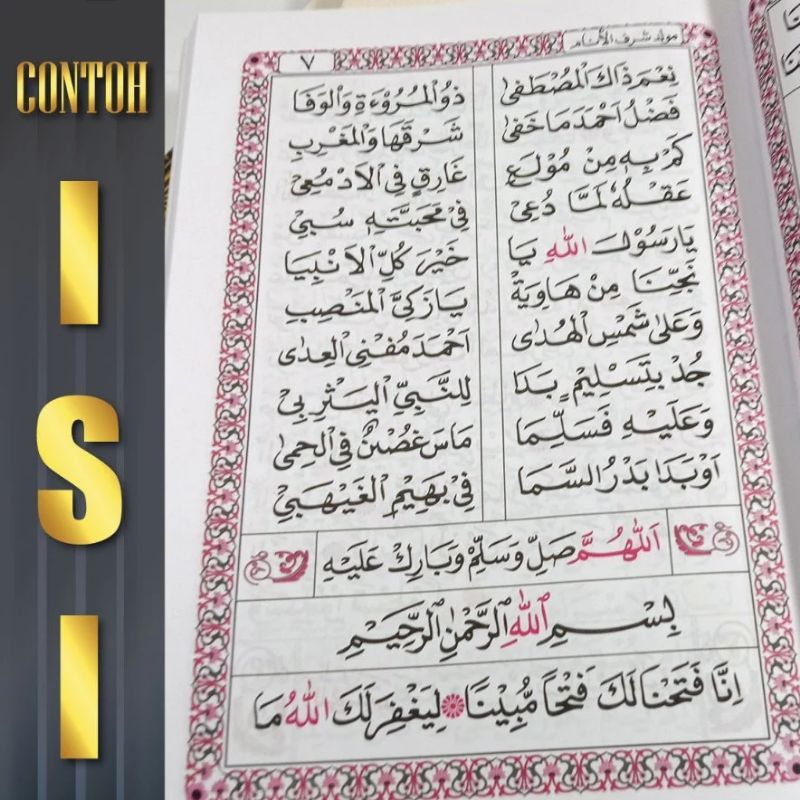 CONTOH
I
S
I
مولد شرف الأنام
٧
نِعْمَ ذَاكَ الْمُصْطَفَى ذُو الْمُرُوْءَةِ وَالْوَفَا
فَضْلُ اَحْمَدَ مَا خَفَى شَرْقَهَا وَالْمَغْرِبِ
كَمْ بِهِ مِنْ مُوْلَعٍ غَارِقٍ فِي الْاَدْمُعِ
عَقْلُهُ لَمَّا دُعِيْ فِيْ مَحَبَّتِهِ سُبِيْ
يَا رَسُوْلَ اللهِ يَا خَيْرَ كُلِّ الْاَنْبِيَا
نَجِّنَا مِنْ هَاوِيَةْ يَا زَكِيَّ الْمَنْصِبِ
وَعَلَى شَمْسِ الْهُدَى اَحْمَدَ مُفْنِي الْعِدَى
جُدْ بِتَسْلِيْمٍ بَدَا لِلنَّبِيِّ الْيَثْرِبِيْ
وَعَلَيْهِ فَسَلِّمَا مَاسَ غُصْنٌ فِي الْحِمَى
اَوْ بَدَا بَدْرُ السَّمَا فِيْ بَهِيْمِ الْغَيْهَبِيْ
اَللّٰهُمَّ صَلِّ وَسَلِّمْ وَبَارِكْ عَلَيْهِ
بِسْمِ اللهِ الرَّحْمٰنِ الرَّحِيْمِ
اِنَّا فَتَحْنَا لَكَ فَتْحًا مُّبِيْنًا لِيَغْفِرَ لَكَ اللهُ مَا